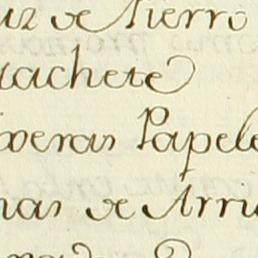 de Fierro
achete
xeras Papele
nas de Arru